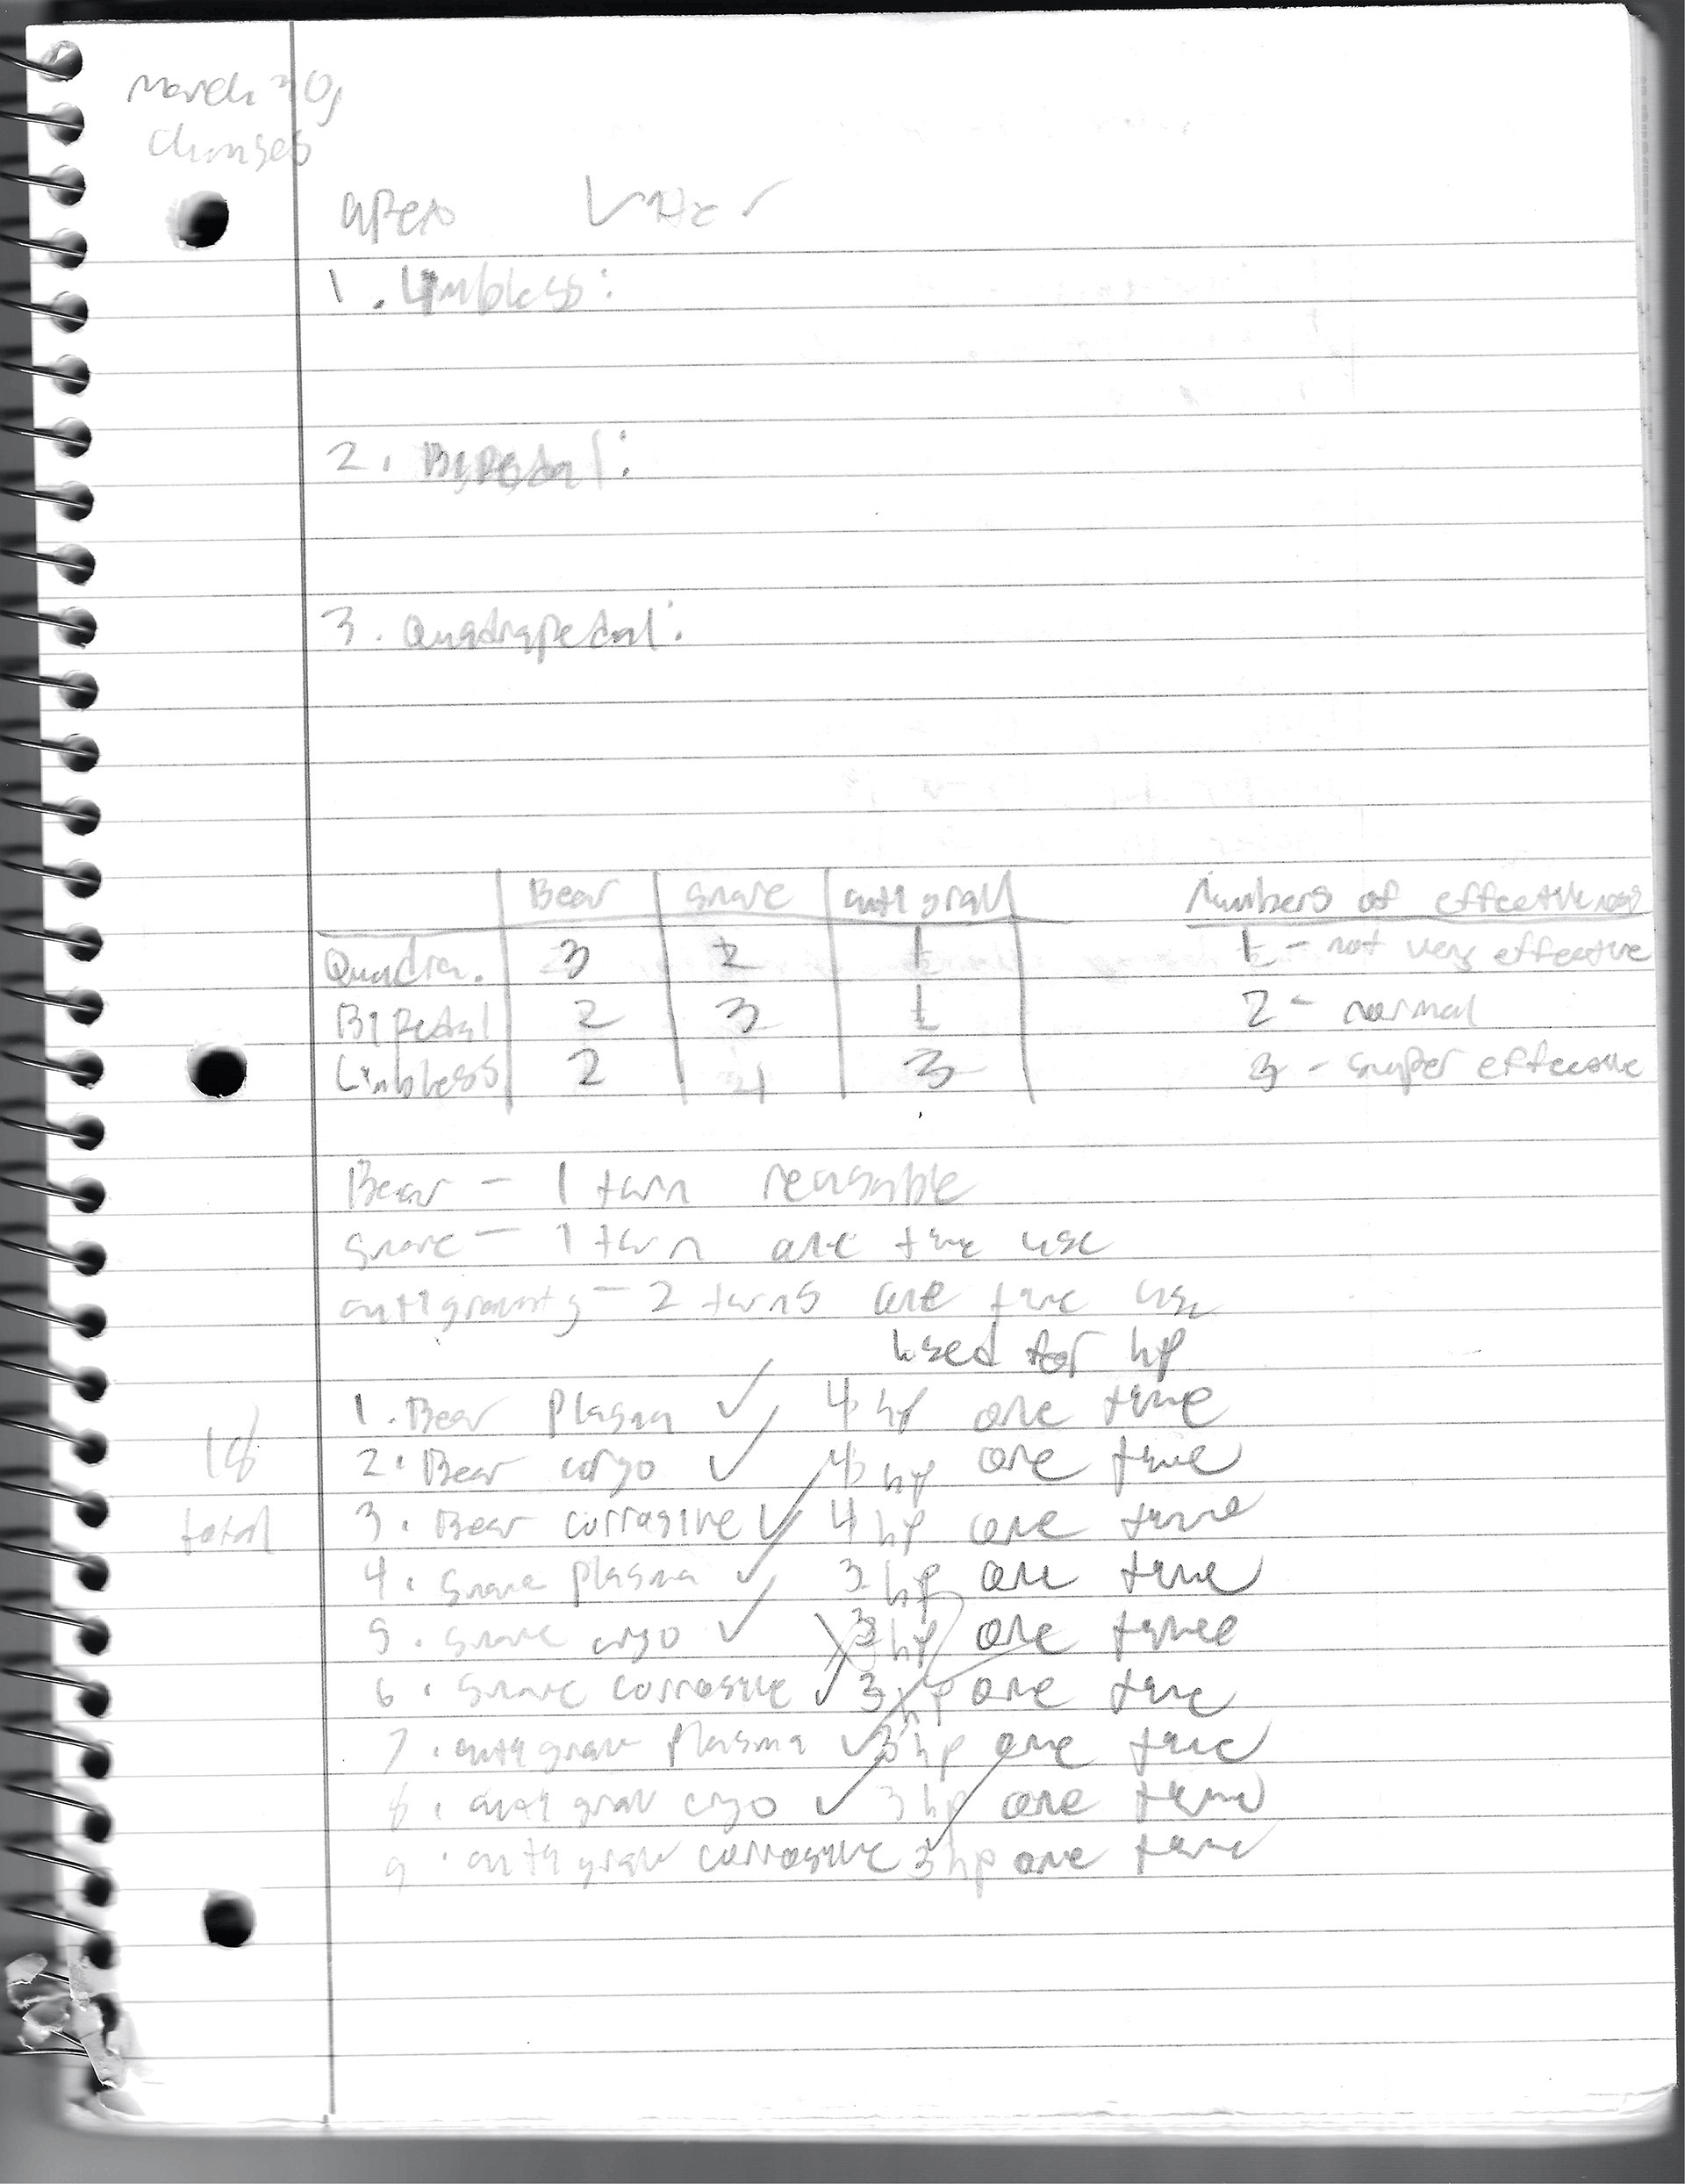 March 30,
Changes
apex
1. Limbless:
2. Bipedal:
3. Quadrapedal:
Bear snare antigrav Numbers of effectiveness
Quadra. 3 2 1 1 - not very effective
Bipedal 2 3 1 2 - normal
Limbless 2 1 3 3 - super effective
Bear - 1 turn reusable
snare - 1 turn one time use
antigravity - 2 turns one time use
used for hp
1. Bear plasma ✓ 4 hp one time
2. Bear cryo ✓ 4 hp one time
18
total
3. Bear corrasive ✓ 4 hp one time
4. snare plasma ✓ 3 hp one time
5. snare cryo ✓ 3 hp one time
6. snare corrosive ✓ 3 hp one time
7. antigrav plasma ✓ 3 hp one time
8. antigrav cryo ✓ 3 hp one time
9. antigrav corrosive 3 hp one time